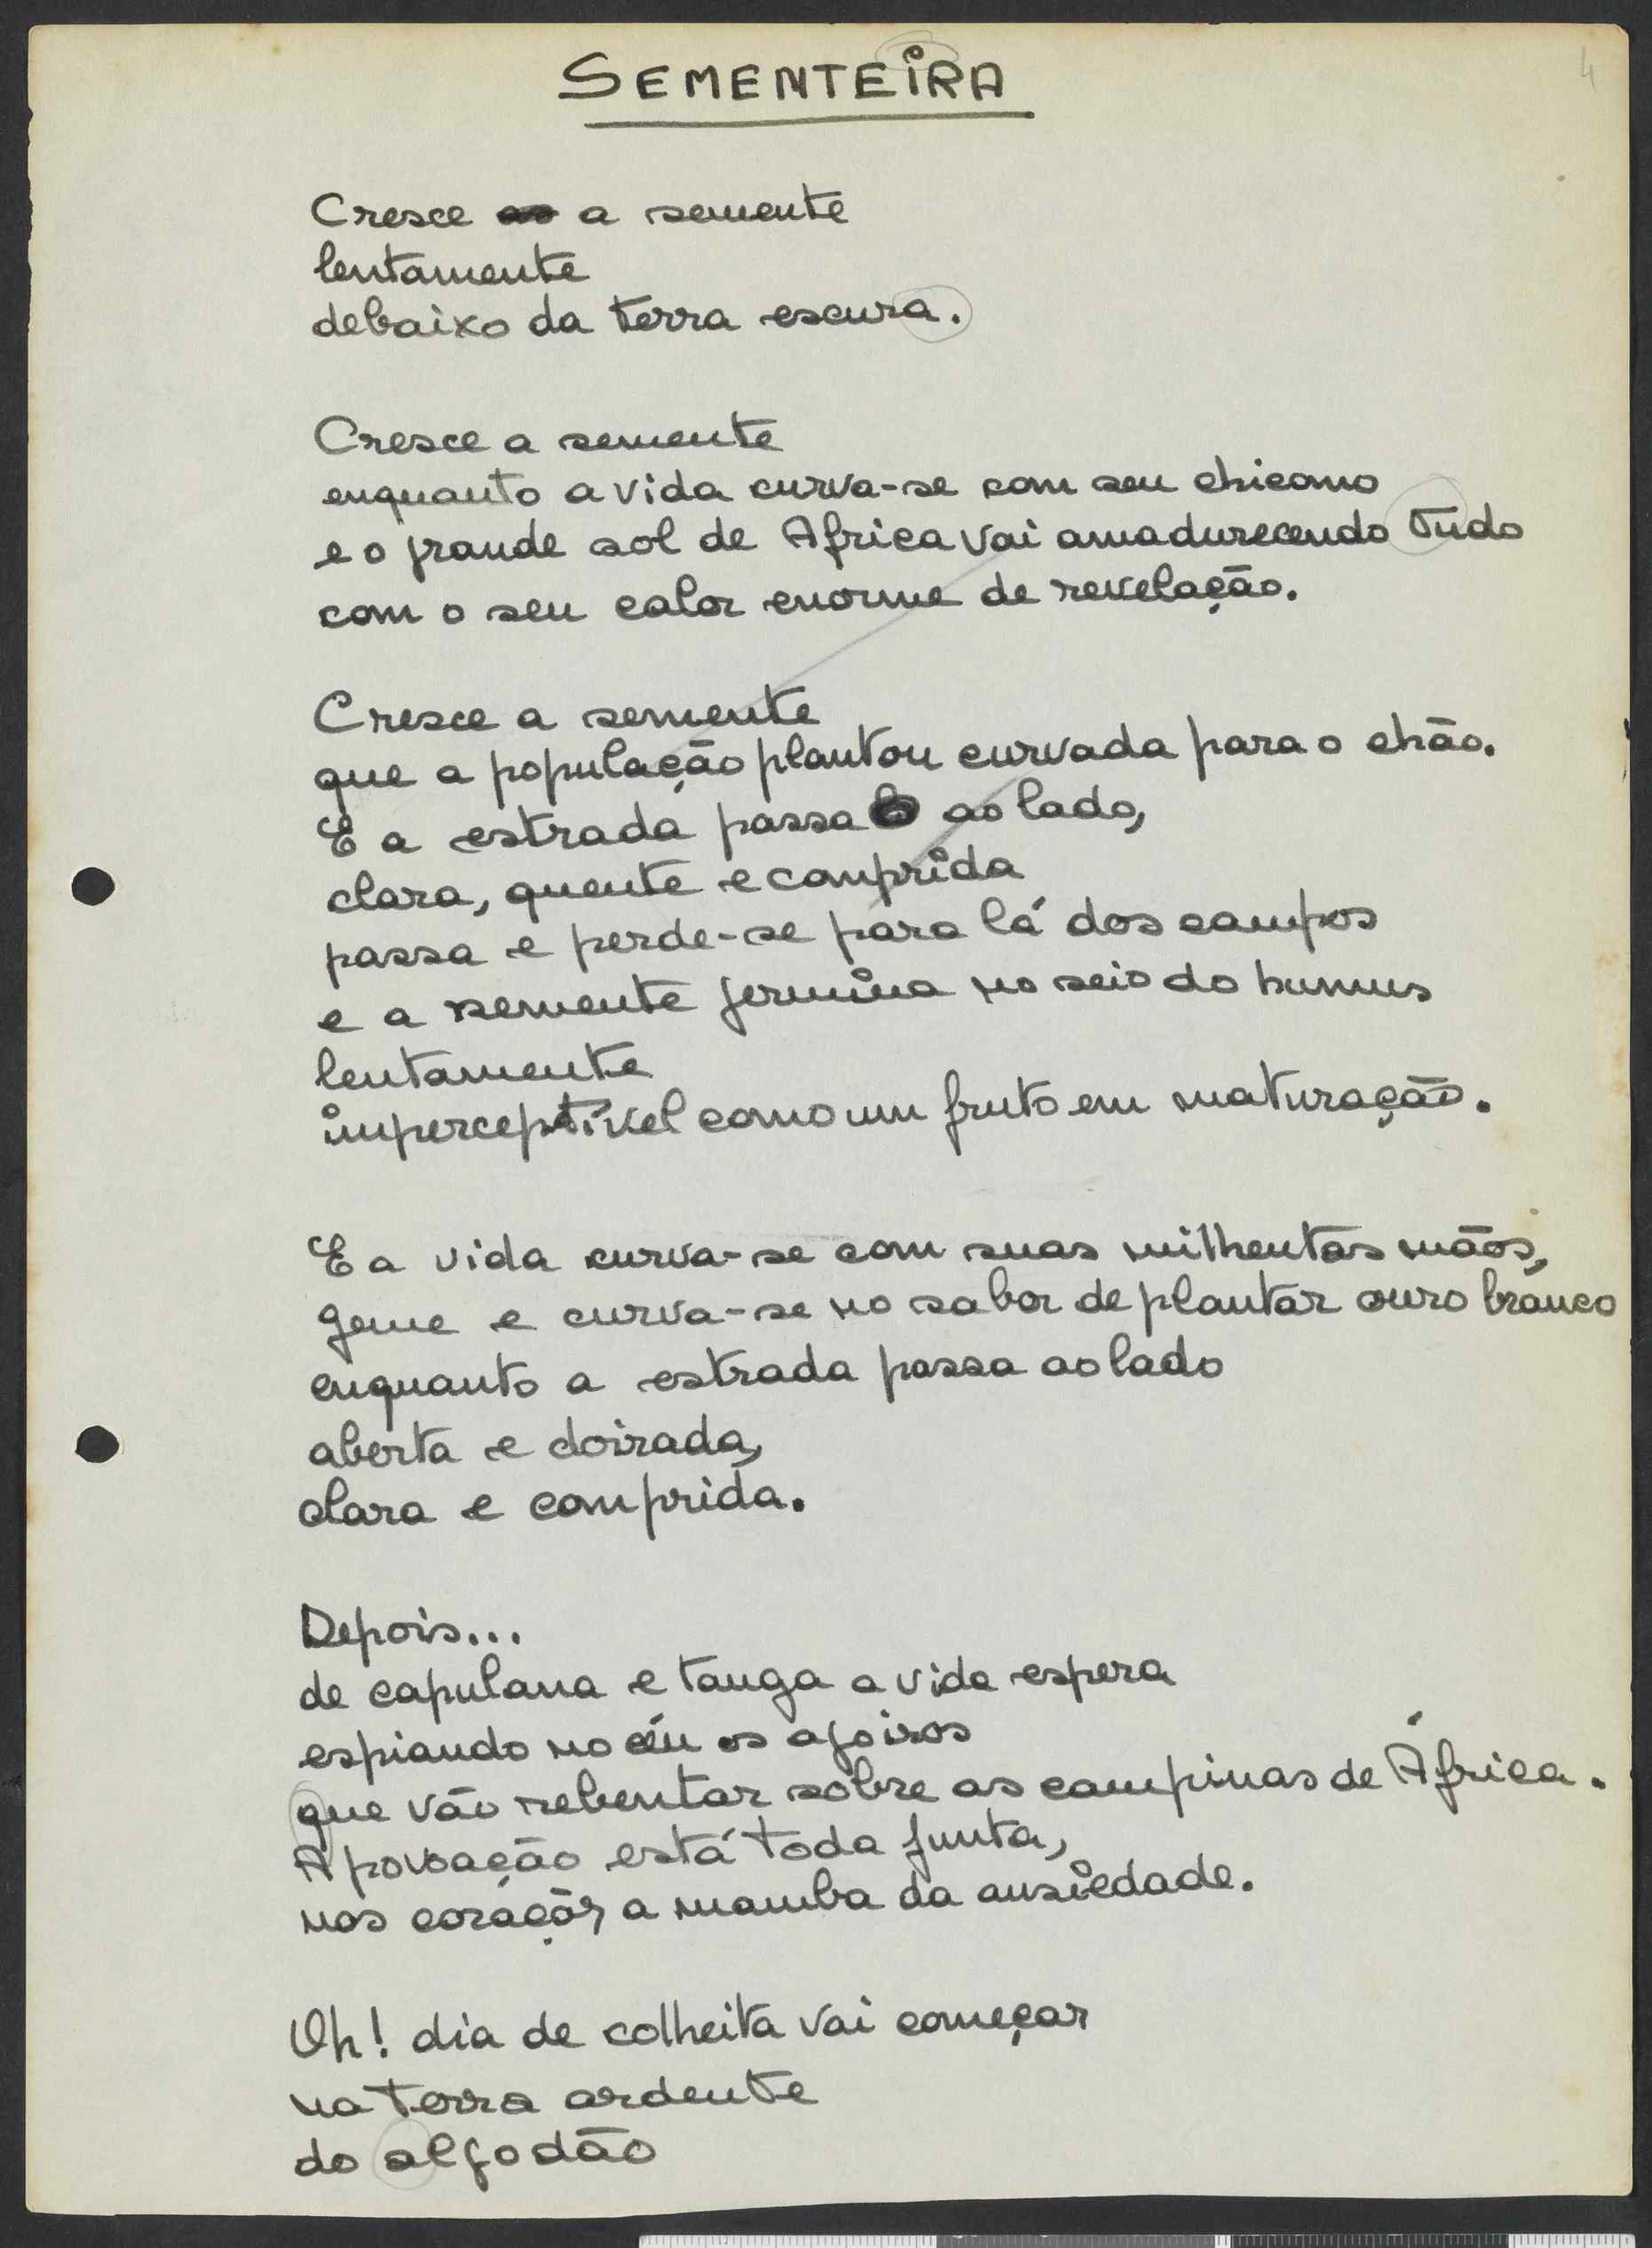 4
SEMENTEIRA
Cresce a semente
lentamente
debaixo da terra escura.
Cresce a semente
enquanto a vida curva-se com seu chicomo
e o grande sol de Africa vai amadurecendo tudo
com o seu calor enorme de revelação.
Cresce a semente
que a população plantou curvada para o chão.
E a estrada passa ao lado,
clara, quente e comprida
passa e perde-se para lá dos campos
e a semente germina no seio do humus
lentamente
imperceptível como um fruto em maturação.
E a vida curva-se com suas milhentas mãos,
geme e curva-se no sabor de plantar ouro branco
enquanto a estrada passa ao lado
aberta e doirada,
clara e comprida.
Depois...
de capulana e tanga a vida espera
espiando no céu os agoiros
que vão rebentar sobre as campinas de África.
A povoação está toda junta,
nos corações a mamba da ansiedade.
Oh! dia de colheita vai começar
na terra ardente
do algodão